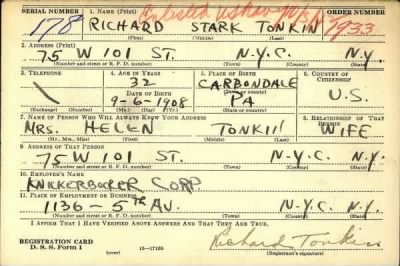 SERIAL NUMBER 1. NAME (Print) ORDER NUMBER
178 RICHARD STARK TONKIN 7933
(First) (Middle) (Last)
2. ADDRESS (Print)
75 W 101 ST. N.Y.C. N.Y.
(Number and street or R. F. D. number) (Town) (County) (State)
3. TELEPHONE 4. AGE IN YEARS 5. PLACE OF BIRTH 6. COUNTRY OF CITIZENSHIP
32 CARBONDALE
DATE OF BIRTH (Town or county)
9-6-1908 PA U.S.
(Exchange) (Number) (Mo.) (Day) (Yr.) (State or country)
7. NAME OF PERSON WHO WILL ALWAYS KNOW YOUR ADDRESS 8. RELATIONSHIP OF THAT PERSON
MRS. HELEN TONKIN WIFE
(Mr., Mrs., Miss) (First) (Middle) (Last)
9. ADDRESS OF THAT PERSON
75 W 101 ST. N.Y.C. N.Y.
(Number and street or R. F. D. number) (Town) (County) (State)
10. EMPLOYER'S NAME
KNICKERBOCKER CORP.
11. PLACE OF EMPLOYMENT OR BUSINESS
1136 - 5TH AV. N.Y.C. N.Y.
(Number and street or R. F. D. number) (Town) (County) (State)
I AFFIRM THAT I HAVE VERIFIED ABOVE ANSWERS AND THAT THEY ARE TRUE.
REGISTRATION CARD
D. S. S. Form 1 16-17105 Richard Tonkin
(Registrant's signature)